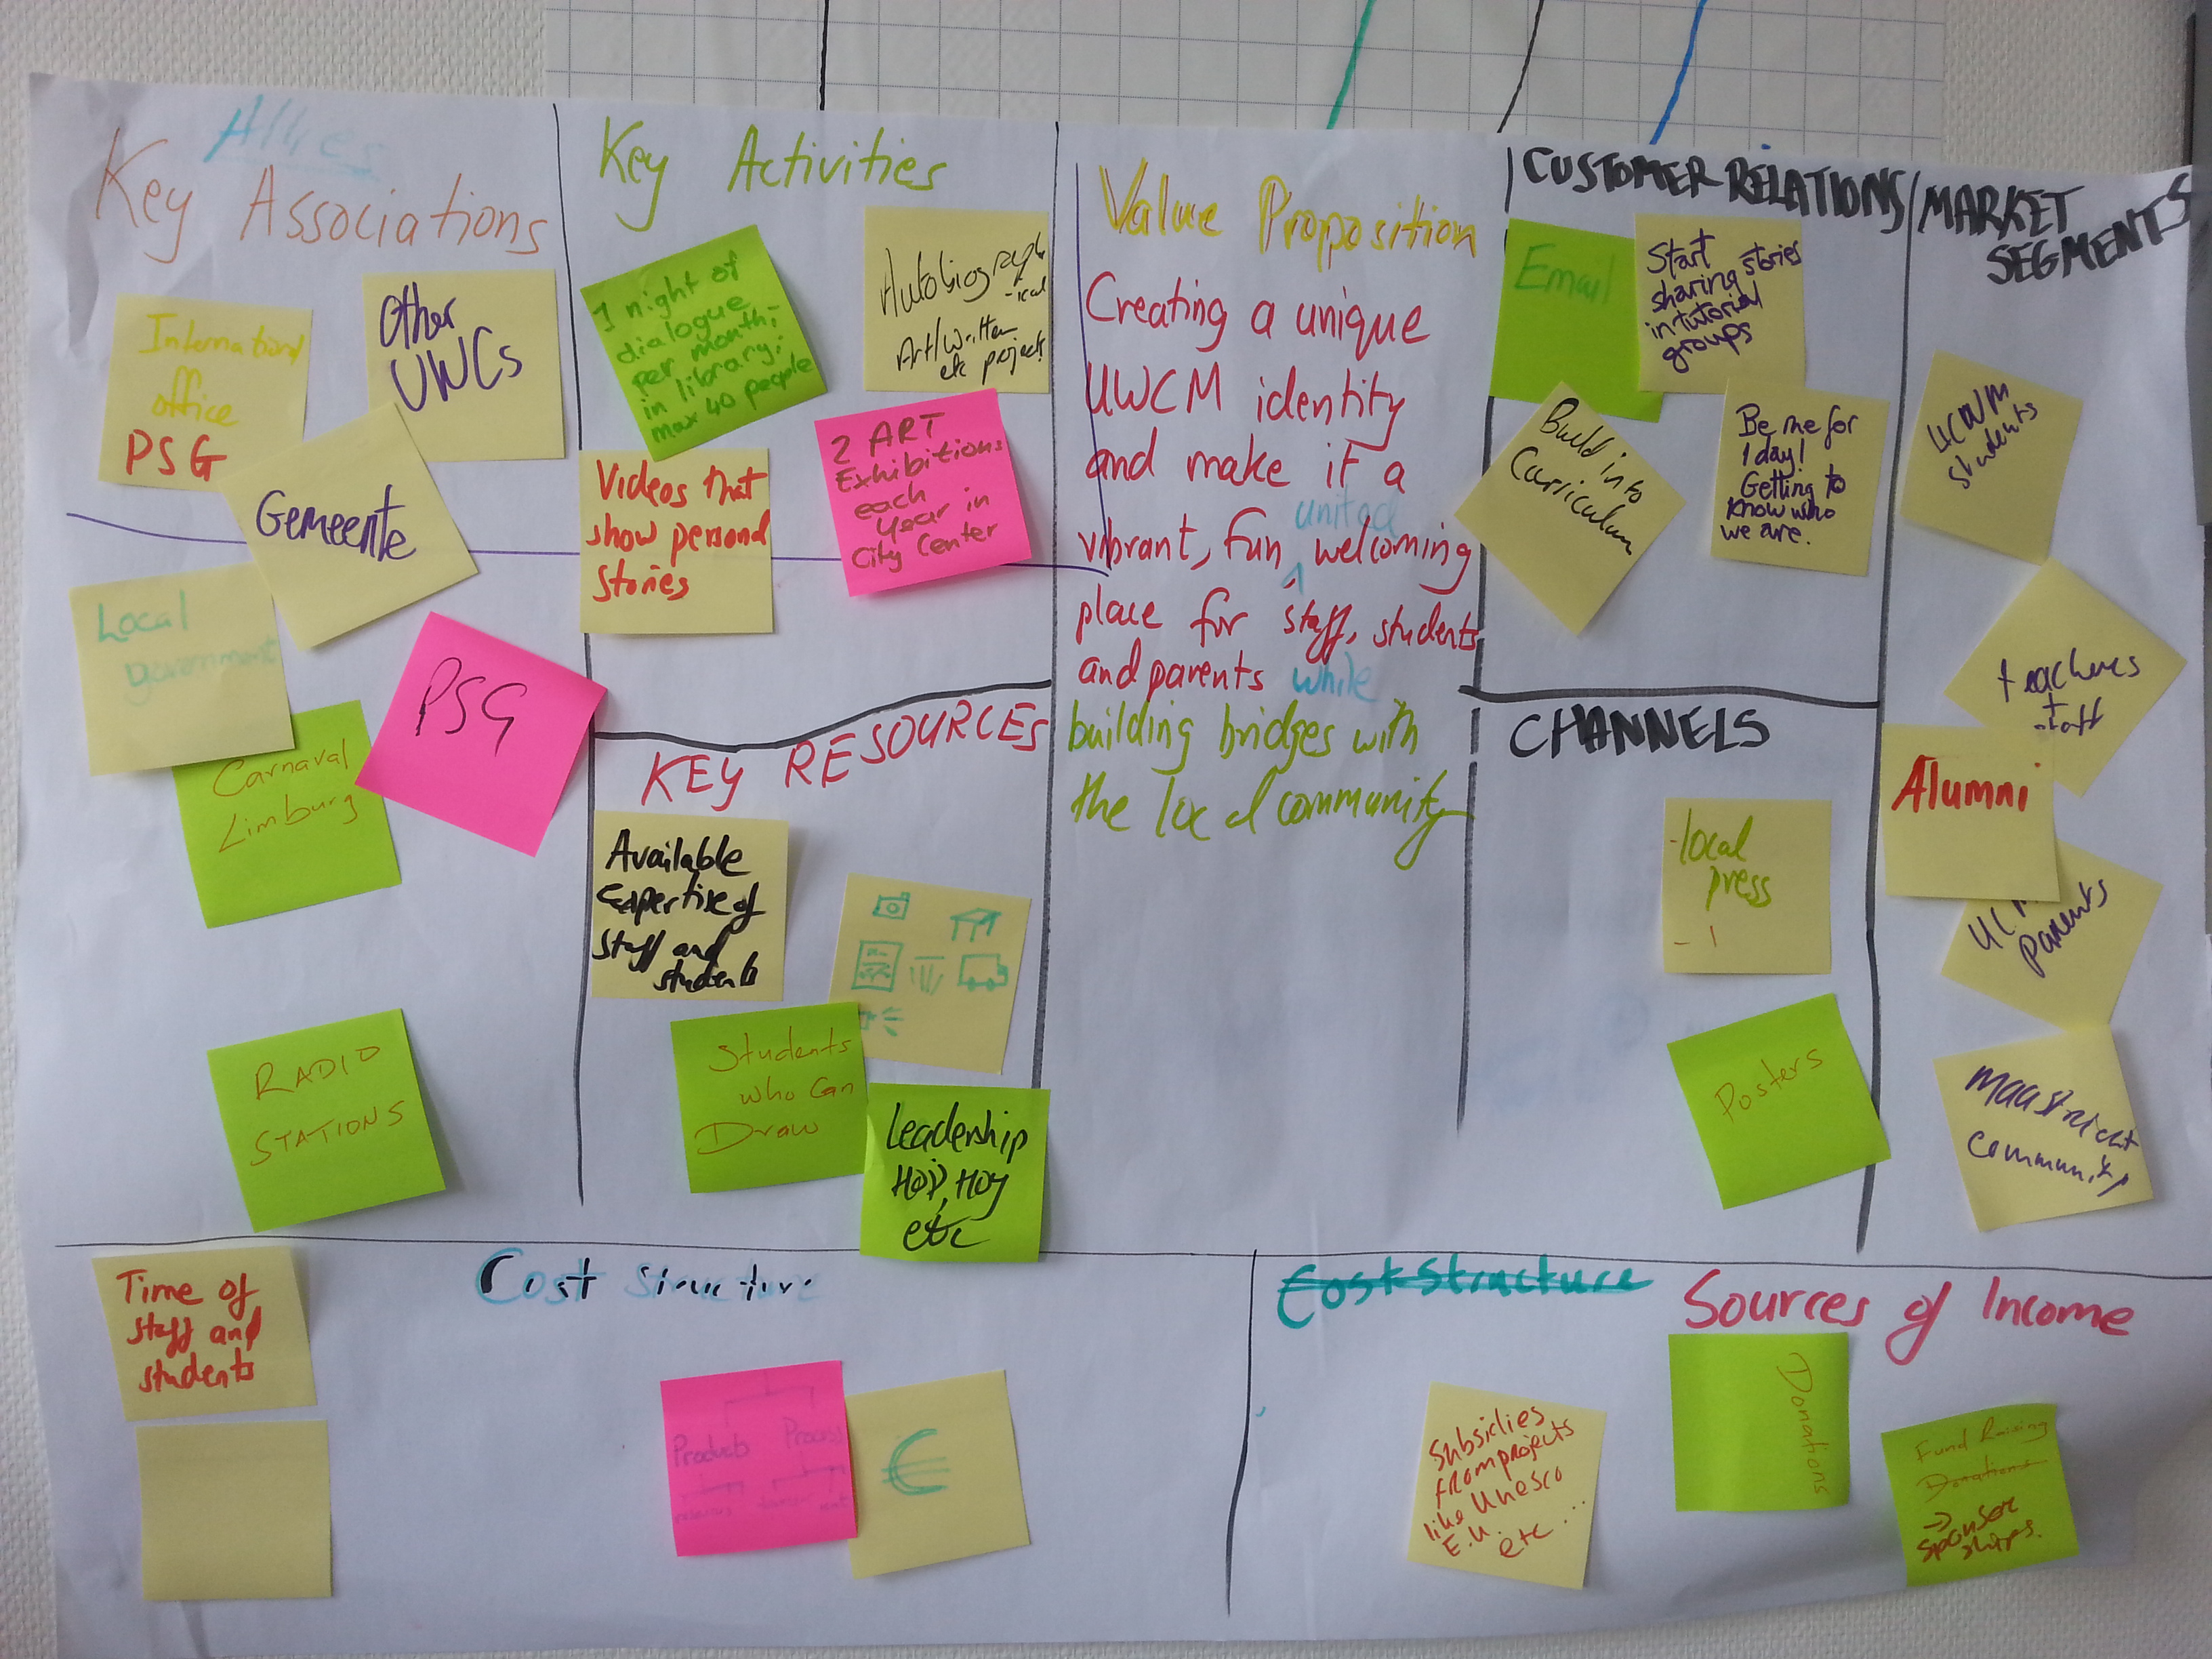 Allies
Key Associations
International
office
PSG
Other
UWCs
Gemeente
Local
government
PSG
Carnaval
Limburg
RADIO
STATIONS
Key Activities
1 night of
dialogue
per month;
in library;
max 40 people
Autobiograph
-ical
Art/written
etc projects
Videos that
show personal
stories
2 ART
Exhibitions
each
year in
City Center
KEY RESOURCES
Available
expertise of
staff and
students
Students
who can
Draw
Leadership
HOD, HOY
etc
Value Proposition
Creating a unique
UWCM identity
and make it a
united
vibrant, fun, welcoming
place for staff, students
and parents while
building bridges with
the local community
CUSTOMER RELATIONS
Email
Start
sharing stories
in tutorial
groups
Build into
Curriculum
Be me for
1 day!
Getting to
know who
we are.
CHANNELS
-local
press
-
Posters
MARKET
SEGMENTS
UCWM
students
teachers
+
staff
Alumni
parents
Maastricht
community
Cost Structure
Time of
staff and
students
Products Process
€
Cost Structure
Sources of Income
Subsidies
from projects
like Unesco
E.U.
etc ...
Donations
Fund Raising
Donations
→
sponser
ships.